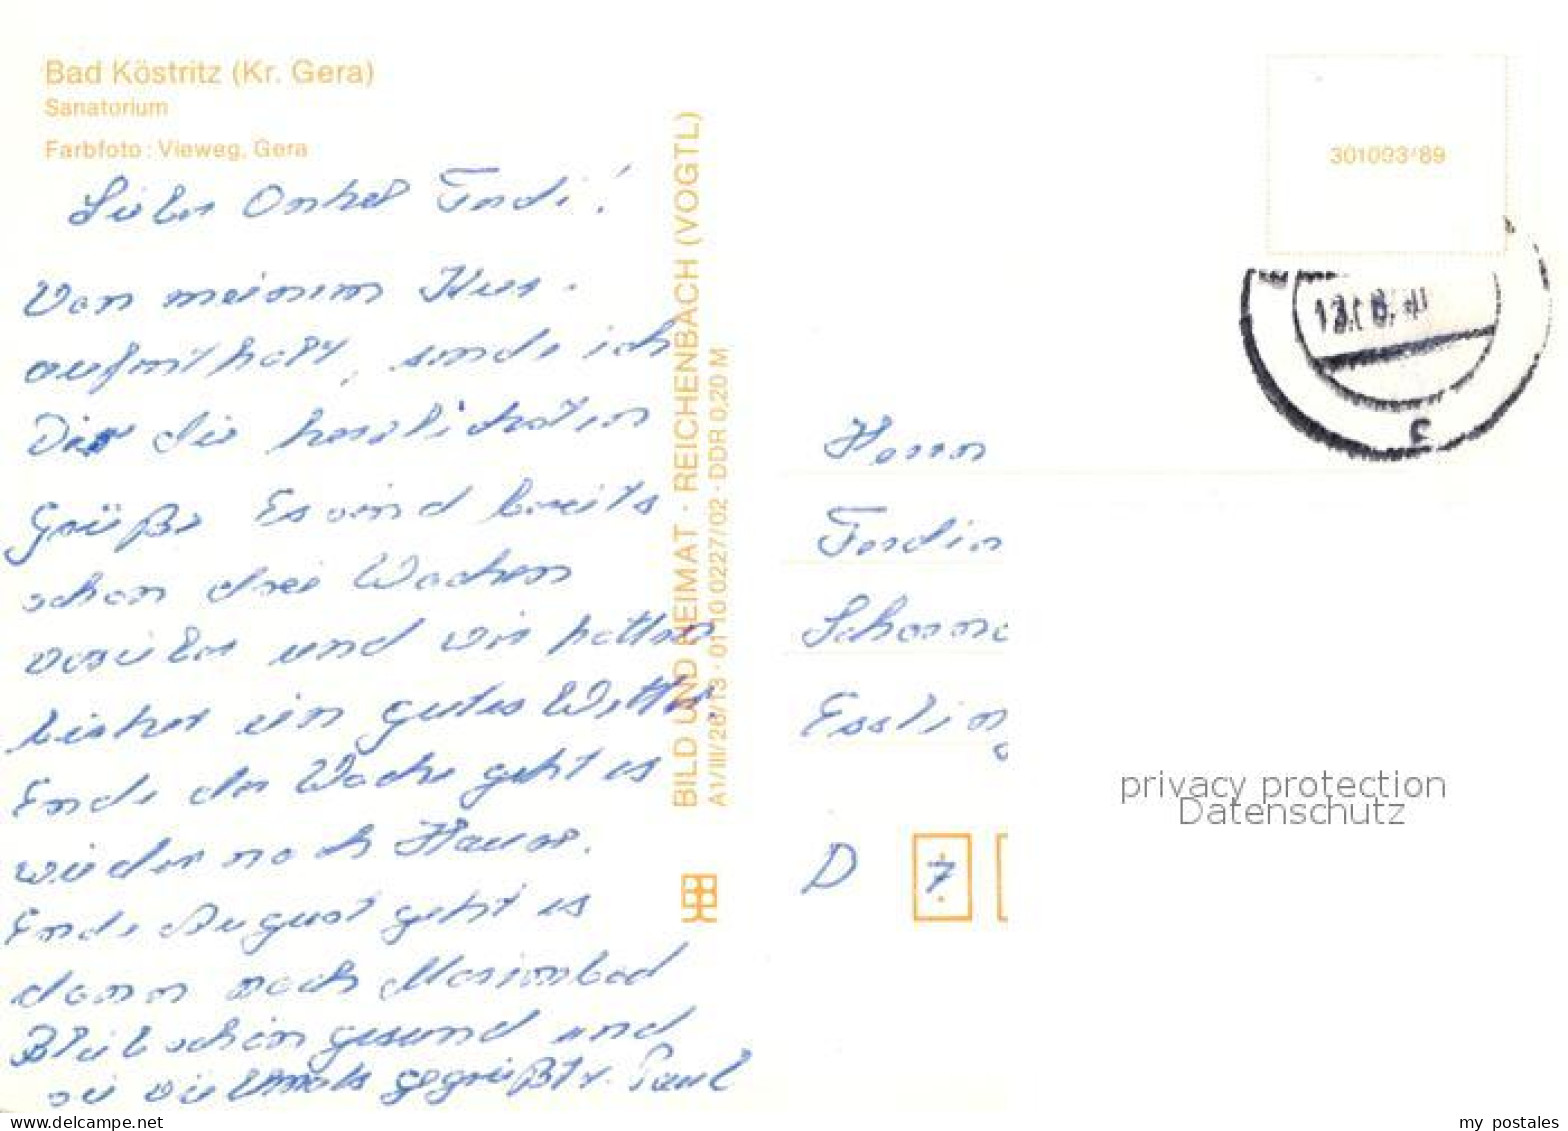 Bad Köstritz (Kr. Gera)
Sanatorium
Farbfoto: Vieweg, Gera
Lieber Onkel Ferdi!
Von meinem Kur-
aufenthalt, sende ich
Dir die herzlichsten
Grüße. Es sind bereits
schon drei Wochen
vorüber und wir hatten
bisher ein gutes Wetter.
Ende der Woche geht es
wieder nach Hause.
Ende August geht es
dann nach Marienbad
Bleib schön gesund und
sei vielmals gegrüßt v. Paul
BILD UND HEIMAT · REICHENBACH (VOGTL)
A1/III/26/13 · 01 10 0227/02 · DDR 0,20 M
301093/89
Herrn
Ferdin
Esslin
D 7
privacy protection
Datenschutz
www.delcampe.net
my_postales